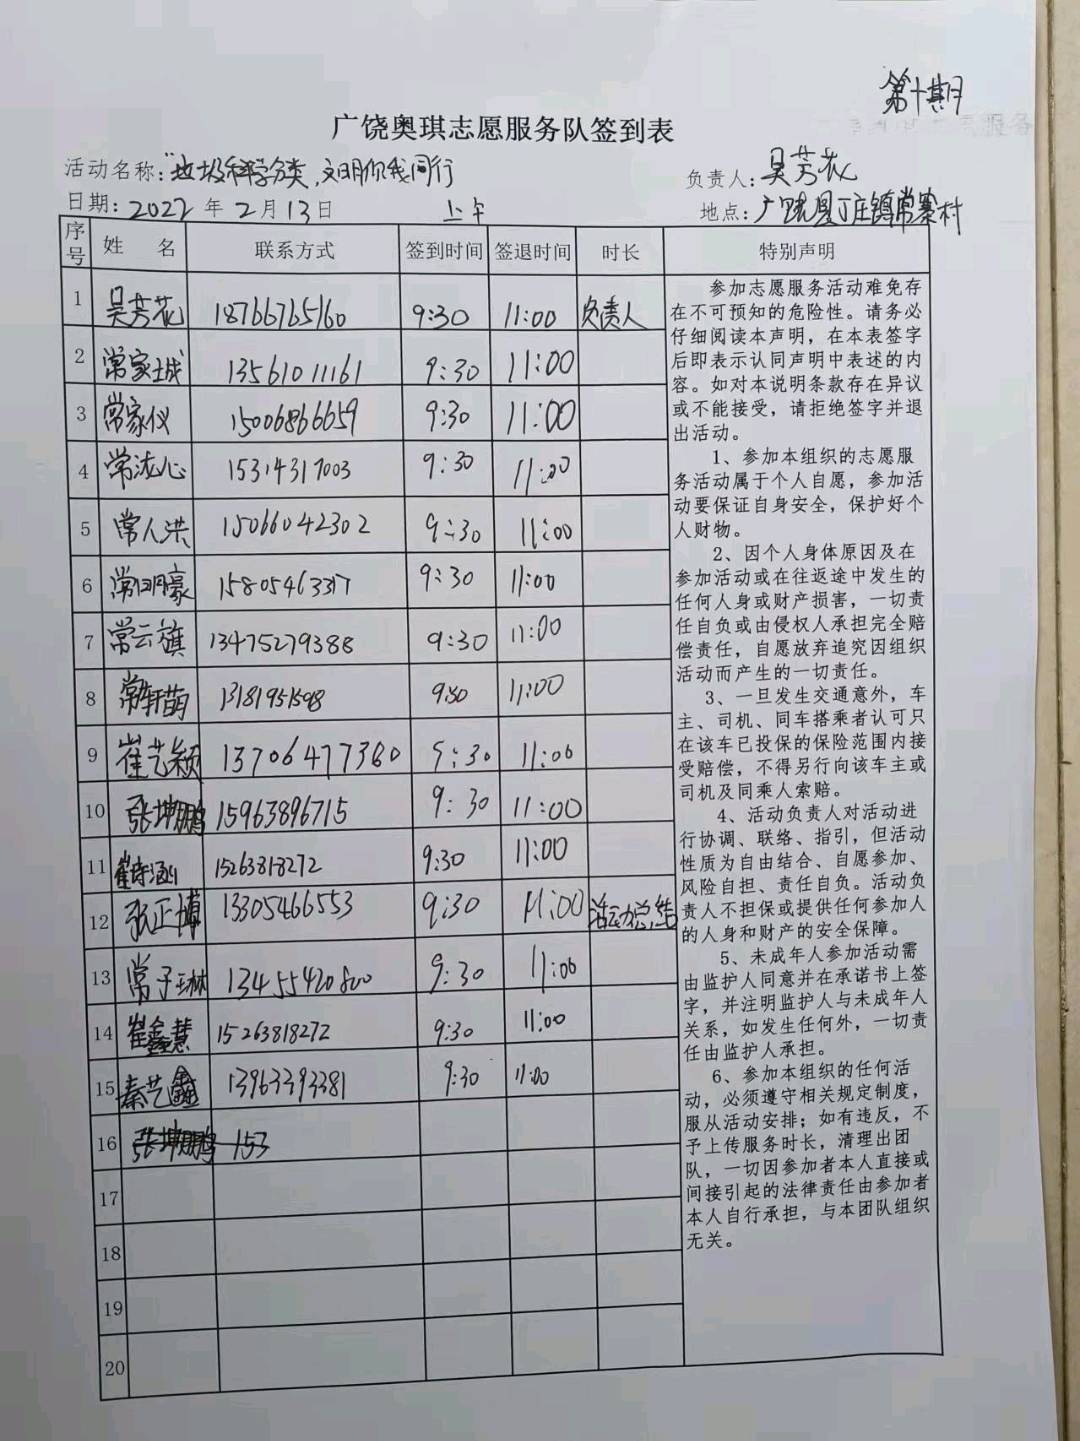 第十期
广饶奥琪志愿服务队签到表
活动名称：“垃圾科学分类，文明你我同行
负责人：吴芳花
日期：2022年2月13日 上午
地点：广饶县丁庄镇常寨村
序号 姓名 联系方式 签到时间 签退时间 时长 特别声明
1 吴芳花 18766765160 9:30 11:00 负责人
2 常家城 13561011161 9:30 11:00
3 常家仪 15006866659 9:30 11:00
4 常沁心 15314317003 9:30 11:00
5 常人洪 15066042302 9:30 11:00
6 常明豪 15805463317 9:30 11:00
7 常云旗 13475279388 9:30 11:00
8 常轩萌 13181951598 9:30 11:00
9 崔艺颖 13706477380 9:30 11:00
10 张坤鹏 15963896715 9:30 11:00
11 崔诗涵 15263818272 9:30 11:00
12 张正博 13305466553 9:30 11:00 活动总结
13 常子琳 13455420800 9:30 11:00
14 崔鑫慧 15263818272 9:30 11:00
15 秦艺鑫 13963393381 9:30 11:00
16 张坤鹏 153
17
18
19
20
参加志愿服务活动难免存
在不可预知的危险性。请务必
仔细阅读本声明，在本表签字
后即表示认同声明中表述的内
容。如对本说明条款存在异议
或不能接受，请拒绝签字并退
出活动。
1、参加本组织的志愿服
务活动属于个人自愿，参加活
动要保证自身安全，保护好个
人财物。
2、因个人身体原因及在
参加活动或在往返途中发生的
任何人身或财产损害，一切责
任自负或由侵权人承担完全赔
偿责任，自愿放弃追究因组织
活动而产生的一切责任。
3、一旦发生交通意外，车
主、司机、同车搭乘者认可只
在该车已投保的保险范围内接
受赔偿，不得另行向该车主或
司机及同乘人索赔。
4、活动负责人对活动进
行协调、联络、指引，但活动
性质为自由结合、自愿参加、
风险自担、责任自负。活动负
责人不担保或提供任何参加人
的人身和财产的安全保障。
5、未成年人参加活动需
由监护人同意并在承诺书上签
字，并注明监护人与未成年人
关系，如发生任何外，一切责
任由监护人承担。
6、参加本组织的任何活
动，必须遵守相关规定制度，
服从活动安排；如有违反，不
予上传服务时长，清理出团
队，一切因参加者本人直接或
间接引起的法律责任由参加者
本人自行承担，与本团队组织
无关。